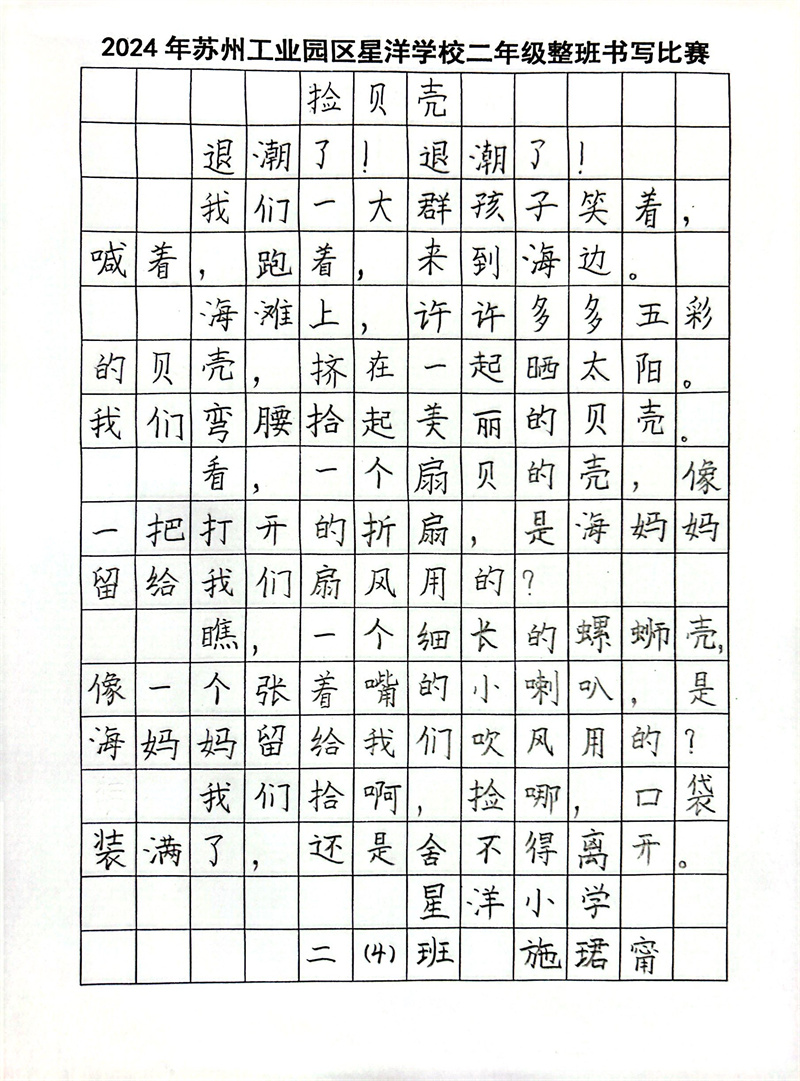 2024年苏州工业园区星洋学校二年级整班书写比赛
捡贝壳
退潮了！退潮了！
我们一大群孩子笑着，
喊着，跑着，来到海边。
海滩上，许许多多五彩
的贝壳，挤在一起晒太阳。
我们弯腰拾起美丽的贝壳。
看，一个扇贝的壳，像
一把打开的折扇，是海妈妈
留给我们扇风用的？
瞧，一个细长的螺蛳壳，
像一个张着嘴的小喇叭，是
海妈妈留给我们吹风用的？
我们拾啊，捡哪，口袋
装满了，还是舍不得离开。
星洋小学
二（4）班 施珺甯